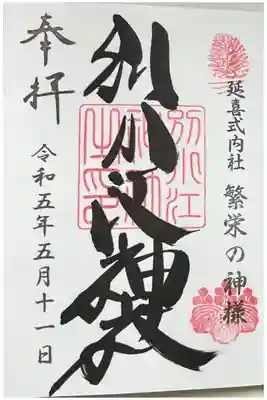 延喜式内社 繁栄の神様
別小江神社
奉拝
令和五年五月十一日
別小江
神社
之印